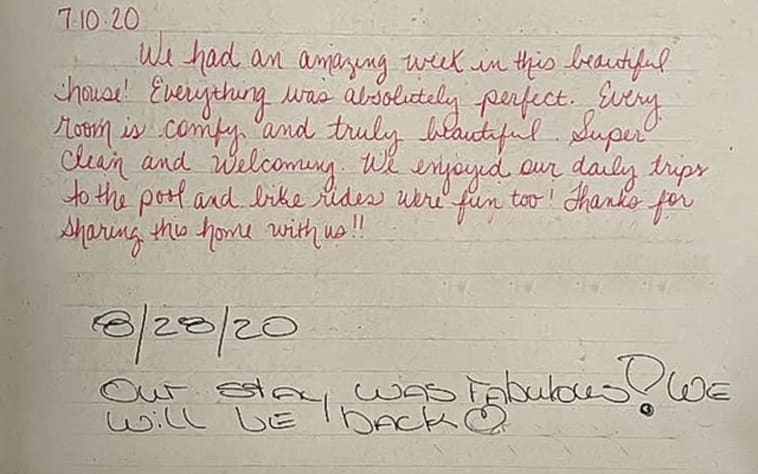 7.10.20
We had an amazing week in this beautiful
house! Everything was absolutely perfect. Every
room is comfy and truly beautiful. Super
clean and welcoming. We enjoyed our daily trips
to the pool and bike rides were fun too! Thanks for
sharing this home with us!!
8/28/20
Our stay was Fabulous! WE
will BE back